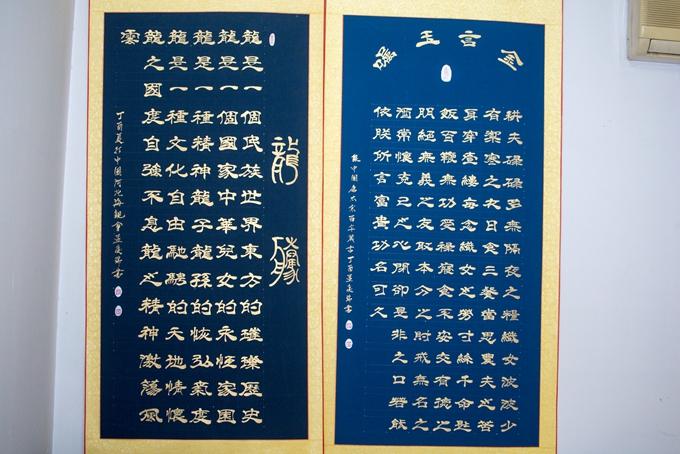 金言玉
耕夫碌碌多無隔夜之糧織女波波少
有禦寒之衣日食三餐當思農夫之苦
身穿壹縷每念織女之勞寸絲千命匙
飯百鞭無功受祿寢食不安交有德之
朋絕無義之友取本分之財戒無名之
酒常懷克己之心閉卻是非之口若能
依朕所言富貴功名可久
錄中國唐太宗百字箴言丁酉書
龍騰
龍是一個民族世界東方的璀璨歷史
龍是一個國家中華兒女的永恆家園
龍是一種精神龍子龍孫的恢弘氣度
龍是一種文化自由馳騁的天地情懷
龍之國度自強不息龍之精神激蕩風
雲
丁酉夏於中國河北書